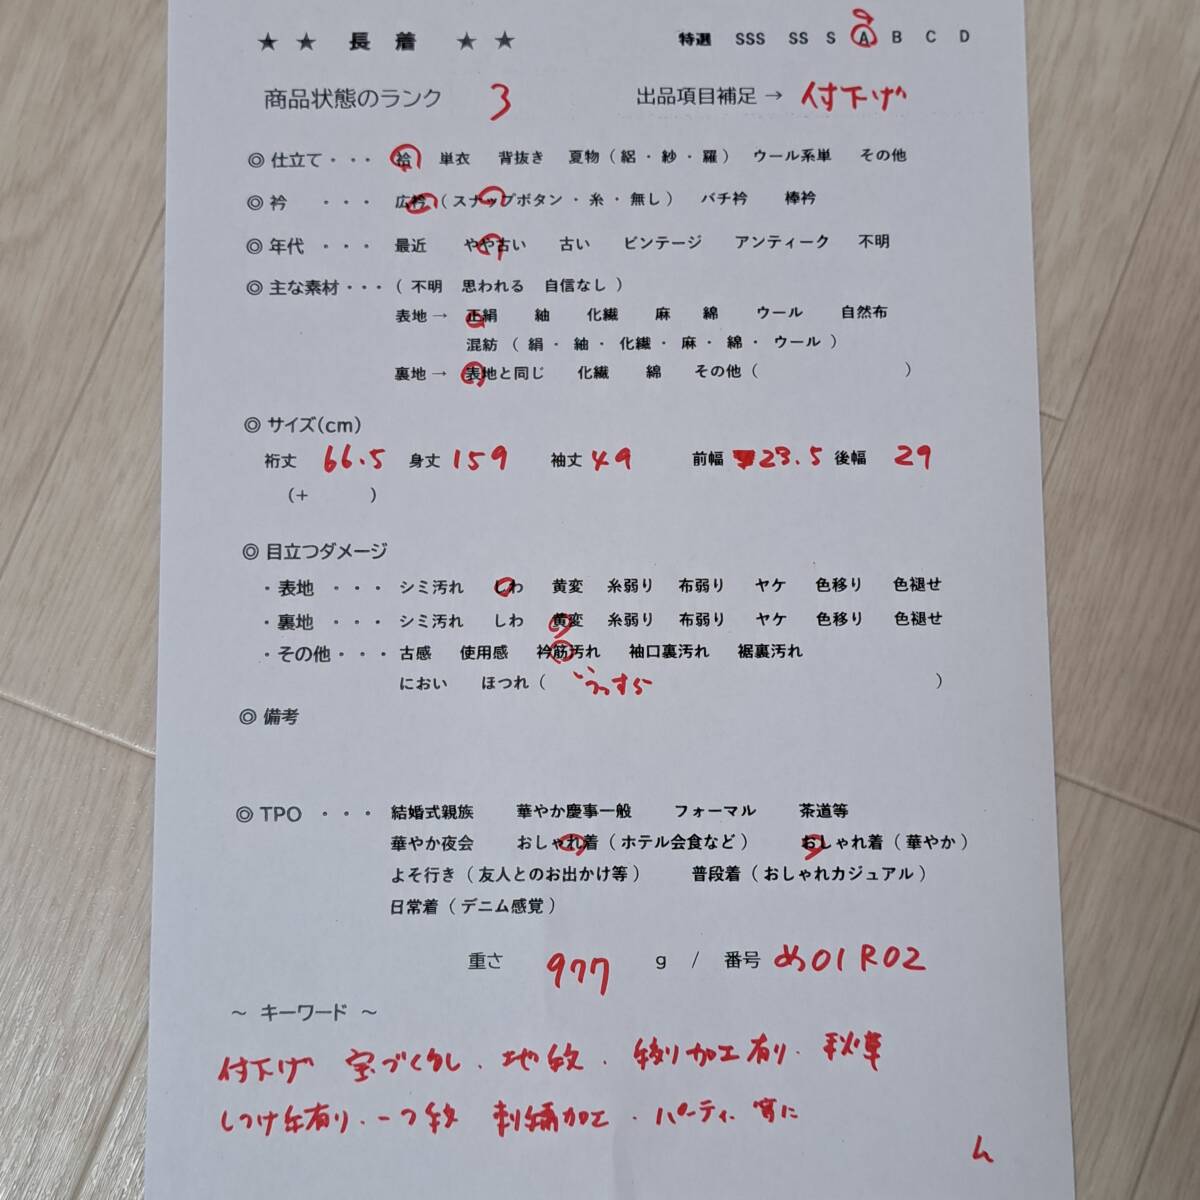 ★ ★ 長 着 ★ ★ 特選 SSS SS S A B C D
商品状態のランク 3 出品項目補足 → 付下げ
◎ 仕立て ・・・ 袷 単衣 背抜き 夏物 ( 絽 ・ 紗 ・ 羅 ) ウール系単 その他
◎ 衿 ・・・ 広衿 ( スナップボタン ・ 糸 ・ 無し ) バチ衿 棒衿
◎ 年代 ・・・ 最近 やや古い 古い ビンテージ アンティーク 不明
◎ 主な素材 ・・・ ( 不明 思われる 自信なし )
表地 → 正絹 紬 化繊 麻 綿 ウール 自然布
混紡 ( 絹 ・ 紬 ・ 化繊 ・ 麻 ・ 綿 ・ ウール )
裏地 → 表地と同じ 化繊 綿 その他 ( )
◎ サイズ(cm)
裄丈 66.5 身丈 159 袖丈 49 前幅 23.5 後幅 29
(+ )
◎ 目立つダメージ
・ 表地 ・・・ シミ汚れ しわ 黄変 糸弱り 布弱り ヤケ 色移り 色褪せ
・ 裏地 ・・・ シミ汚れ しわ 黄変 糸弱り 布弱り ヤケ 色移り 色褪せ
・ その他 ・・・ 古感 使用感 衿筋汚れ 袖口裏汚れ 裾裏汚れ
におい ほつれ ( うっすら )
◎ 備考
◎ TPO ・・・ 結婚式親族 華やか慶事一般 フォーマル 茶道等
華やか夜会 おしゃれ着 ( ホテル会食など ) おしゃれ着 ( 華やか )
よそ行き ( 友人とのお出かけ等 ) 普段着 ( おしゃれカジュアル )
日常着 ( デニム感覚 )
重さ 977 g / 番号 め01R02
～ キーワード ～
付下げ 宝づくし ・ 地紋 ・ 絞り加工有り ・ 秋草
しつけ糸有り ・ 一つ紋 刺繍加工 ・ パーティー
ん